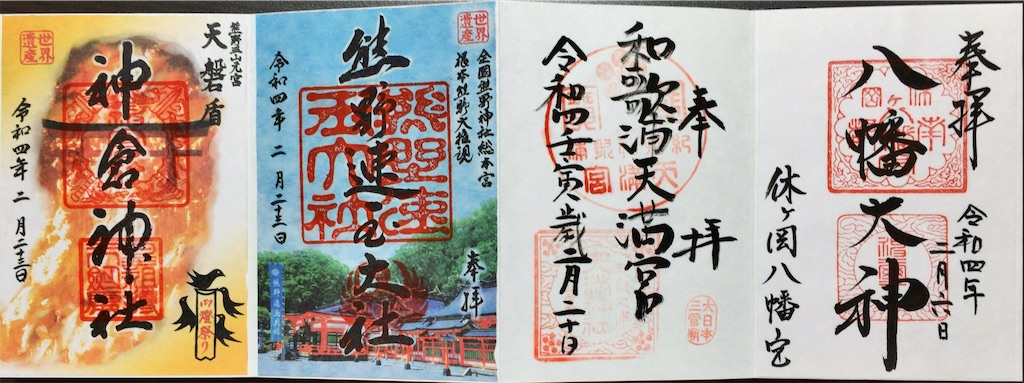 奉拝
八幡大神
令和四年
二月六日
休ヶ岡八幡宮
奉拝
和歌浦天満宮
令和四壬寅歳二月二十日
大日本
三菅廟
世界
遺産
全国熊野神社総本宮
根本熊野大権現
熊野速玉大社
奉拝
令和四年二月二十三日
熊野速玉大社
熊野三山元宮
天磐盾
神倉神社
令和四年二月二十三日
世界
遺産
御燈祭り